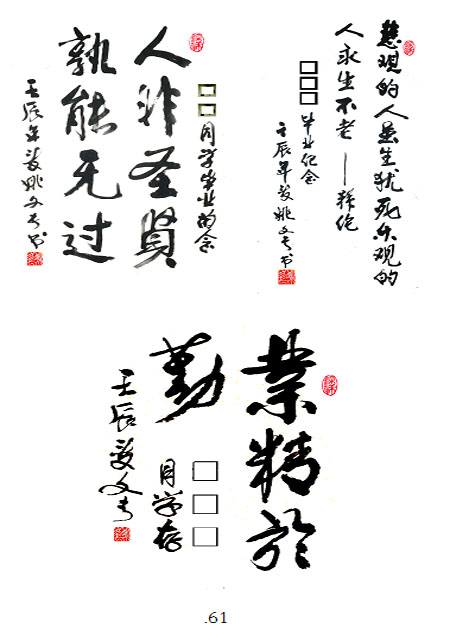 悲观的人虽生犹死乐观的
人永生不老——拜伦
□□□毕业纪念
壬辰年夏姚文专书
□□同学毕业留念
人非圣贤
孰能无过
壬辰年夏姚文专书
業精於
勤
□□□同学存
壬辰夏文专
.61